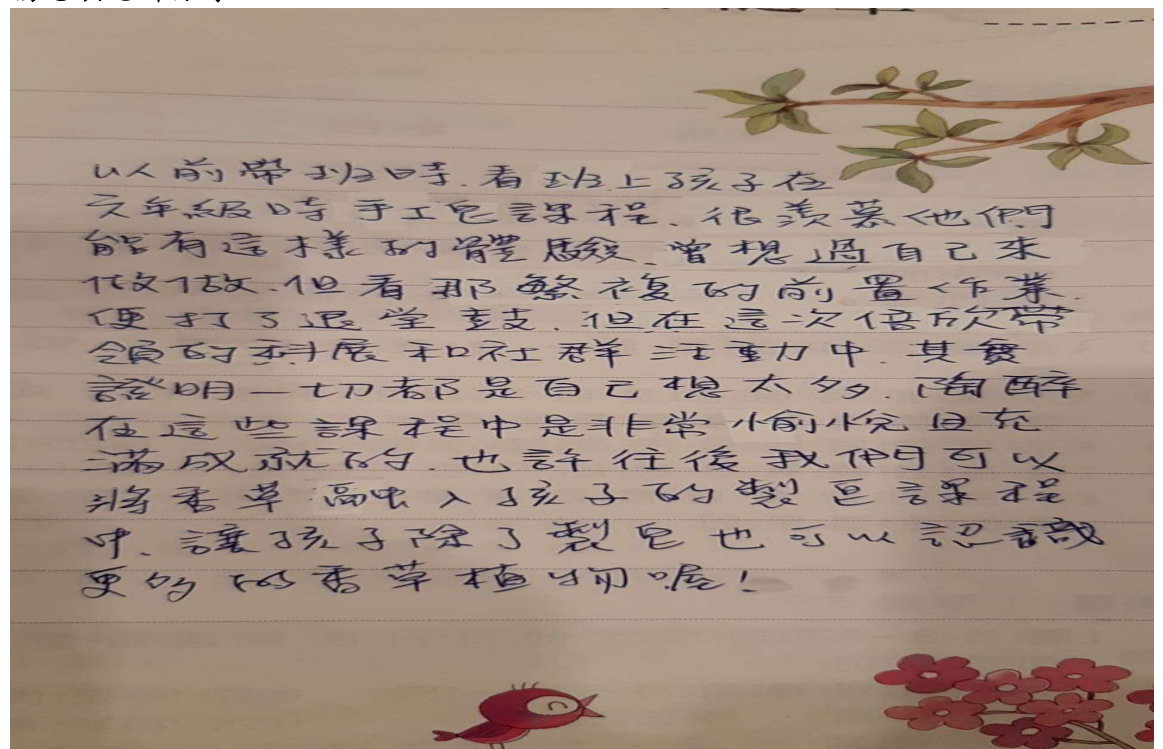 以前帶班時、看班上孩子在
六年級時手工皂課程、很羨慕他們
能有這樣的體驗、曾想過自己來
做做、但看那繁複的前置作業、
便打了退堂鼓、但在這次倍欣帶
領的科展和社群活動中、其實
證明一切都是自己想太多、陶醉
在這些課程中是非常愉悅且充
滿成就的、也許往後我們可以
將香草融入孩子的製皂課程
中、讓孩子除了製皂也可以認識
更多的香草植物喔！